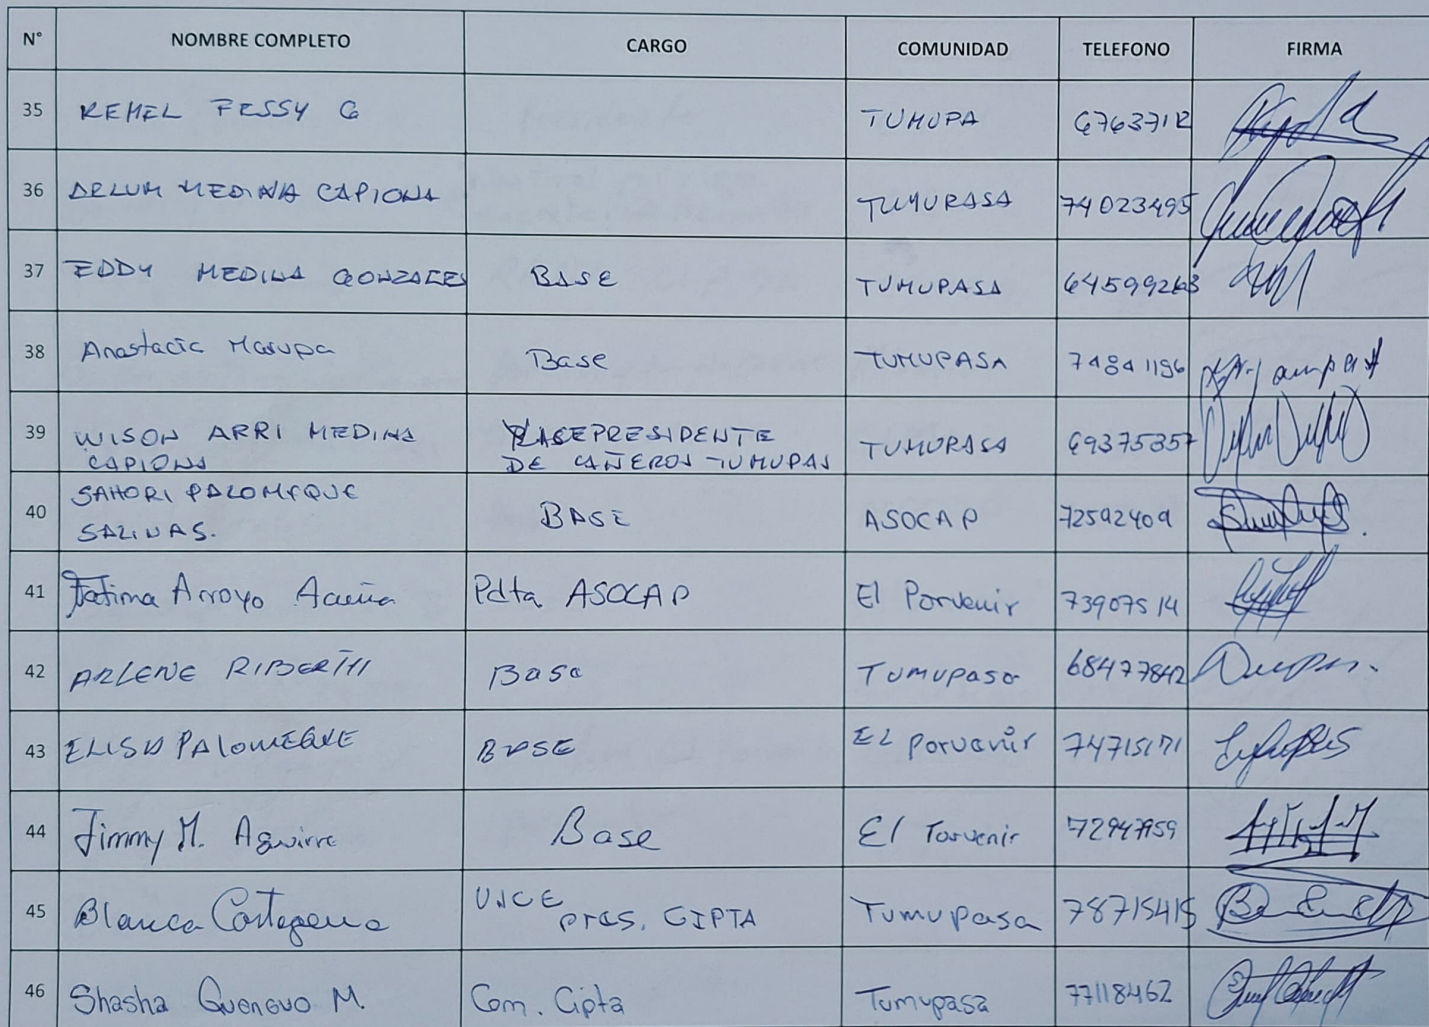 N° NOMBRE COMPLETO CARGO COMUNIDAD TELEFONO FIRMA
35 REMEL FESSY G TUMUPA 6763712
36 ARLUM MEDINA CAPIONA TUMUPASA 74023495
37 EDDY MEDINA GONZALES BASE TUMUPASA
38 Anastacia Marupa Base TUMUPASA 74841196
39 WISON ARRI MEDINA CAPIONA VICEPRESIDENTE DE CAÑEROS TUMUPAS TUMUPASA 69375357
40 SAHORI PALOMEQUE SALINAS. BASE ASOCAP 72592409
41 Fatima Arroyo Acuña Pdta ASOCAP El Porvenir 73907514
42 ARLENE RIBERTHI Base Tumupasa 68477842
43 ELISA PALOMEQUE BASE EL porvenir 74715171
44 Jimmy M. Aguirre Base El Porvenir 72947959
45 Blanca Cartagena VICE pres. CIPTA Tumupasa 78715415
46 Shasha Guenevo M. Com. Cipta Tumupasa 77118462